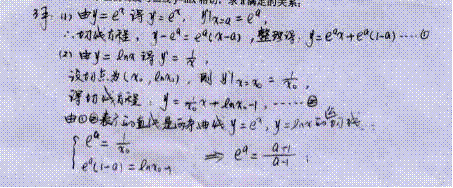 解：(1) 由y=eˣ得y'=eˣ, y'|ₓ₌ₐ=eᵃ,
∴切线方程, y-eᵃ=eᵃ(x-a), 整理得: y=eᵃx+eᵃ(1-a) ……①
(2) 由y=lnx得y'=1/x,
设切点为(x₀, lnx₀), 则y'|ₓ₌ₓ₀=1/x₀,
得切线方程: y=1/x₀ x+lnx₀-1, ……②
由①②表示的直线是所求曲线y=eˣ, y=lnx的公切线.
{ eᵃ=1/x₀
eᵃ(1-a)=lnx₀-1 ⇒ eᵃ=(a+1)/(a-1);